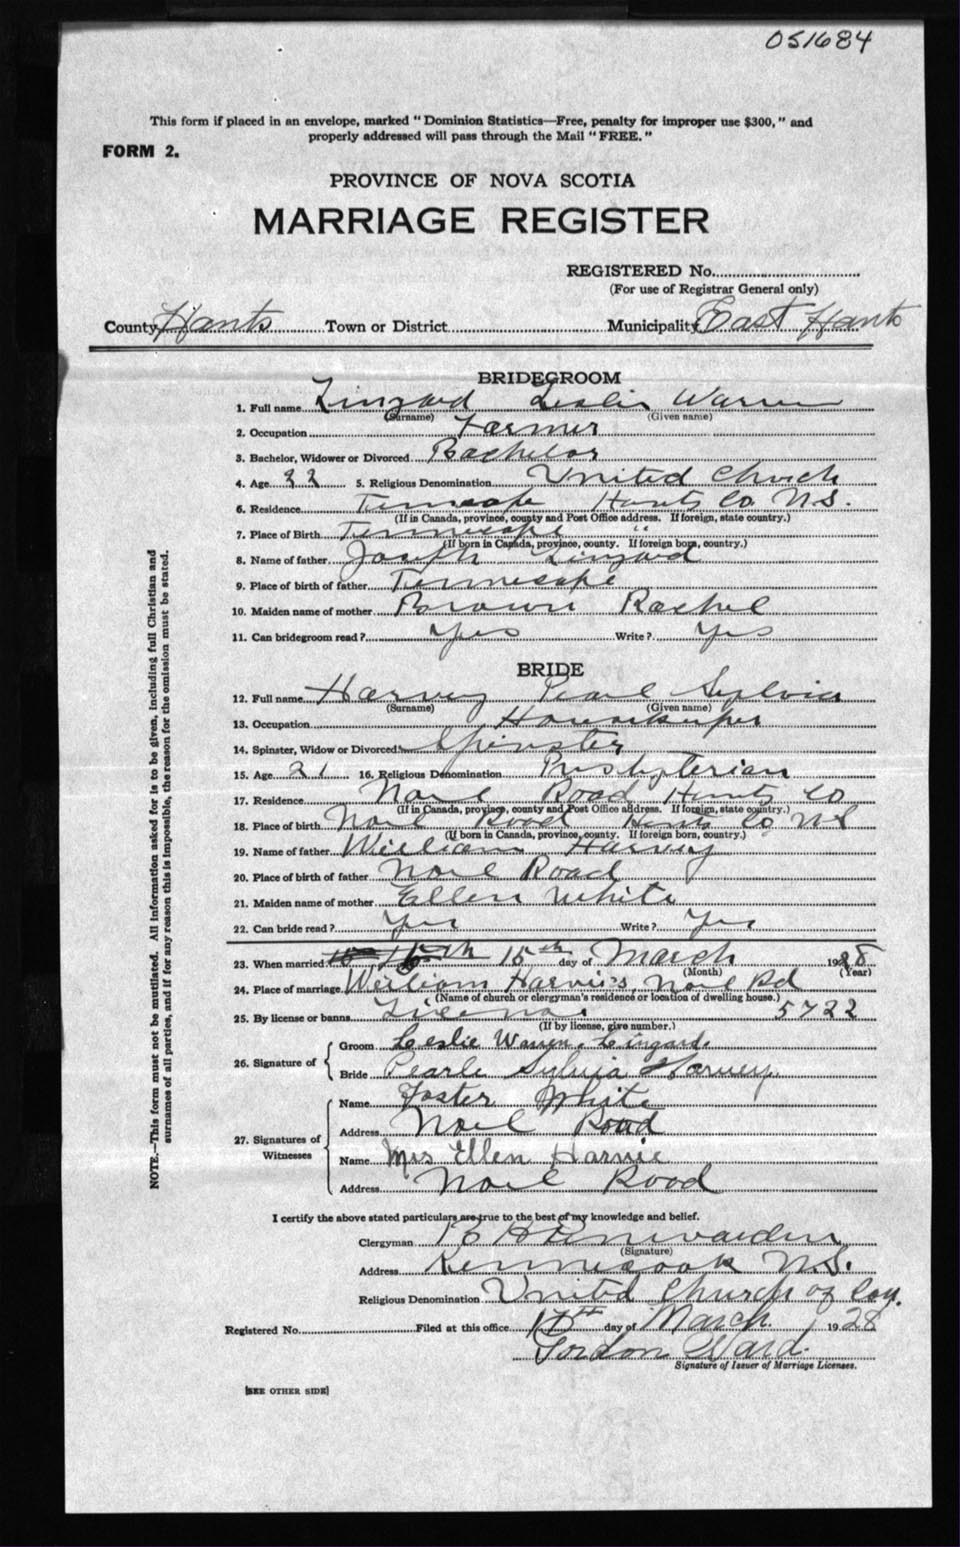 051684
This form if placed in an envelope, marked "Dominion Statistics—Free, penalty for improper use $300," and
properly addressed will pass through the Mail "FREE."
FORM 2.
PROVINCE OF NOVA SCOTIA
MARRIAGE REGISTER
REGISTERED No.
(For use of Registrar General only)
County Hants Town or District Municipality East Hants
BRIDEGROOM
1. Full name Lingard Leslie Warren
(Surname) (Given name)
2. Occupation Farmer
3. Bachelor, Widower or Divorced Bachelor
4. Age 5. Religious Denomination United Church
6. Residence Tennecape Hants Co N.S.
(If in Canada, province, county and Post Office address. If foreign, state country.)
7. Place of Birth Tennecape " "
(If born in Canada, province, county. If foreign born, country.)
8. Name of father Joseph Lingard
9. Place of birth of father Tennecape
10. Maiden name of mother Brown Rachel
11. Can bridegroom read? Yes Write? Yes
BRIDE
12. Full name Harvey Pearl Sylvia
(Surname) (Given name)
13. Occupation Housekeeper
14. Spinster, Widow or Divorced Spinster
15. Age 21 16. Religious Denomination Presbyterian
17. Residence Noel Road Hants Co
(If in Canada, province, county and Post Office address. If foreign, state country.)
18. Place of birth Noel Road Hants Co NS
(If born in Canada, province, county. If foreign born, country.)
19. Name of father William Harvey
20. Place of birth of father Noel Road
21. Maiden name of mother Ellen White
22. Can bride read? Yes Write? Yes
23. When married 15th day of March 1928
(Month) (Year)
24. Place of marriage William Harvies, Noel Rd
(Name of church or clergyman's residence or location of dwelling house.)
25. By license or banns License 5722
(If by license, give number.)
26. Signature of
Groom Leslie Warren Lingard.
Bride Pearle Sylvia Harvey
27. Signatures of Witnesses
Name Foster White
Address Noel Road
Name Mrs Ellen Harvie
Address Noel Road
I certify the above stated particulars are true to the best of my knowledge and belief.
Clergyman
(Signature)
Address Kennecook N.S.
Religious Denomination United Church of Can.
Registered No. Filed at this office day of March 1928
Gordon Ward.
Signature of Issuer of Marriage Licenses.
[SEE OTHER SIDE]
NOTE.—This form must not be mutilated. All information asked for is to be given, including full Christian and
surnames of all parties, and if for any reason this is impossible, the reason for the omission must be stated.